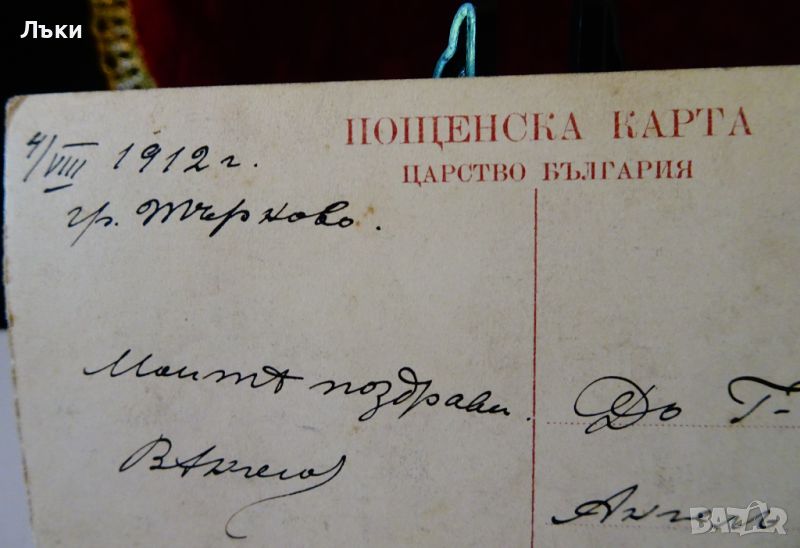 Лъки
ПОЩЕНСКА КАРТА
ЦАРСТВО БЪЛГАРИЯ
4/VIII 1912 г.
гр. Търново.
Моитѣ поздрави.
До Г-
BAZAR